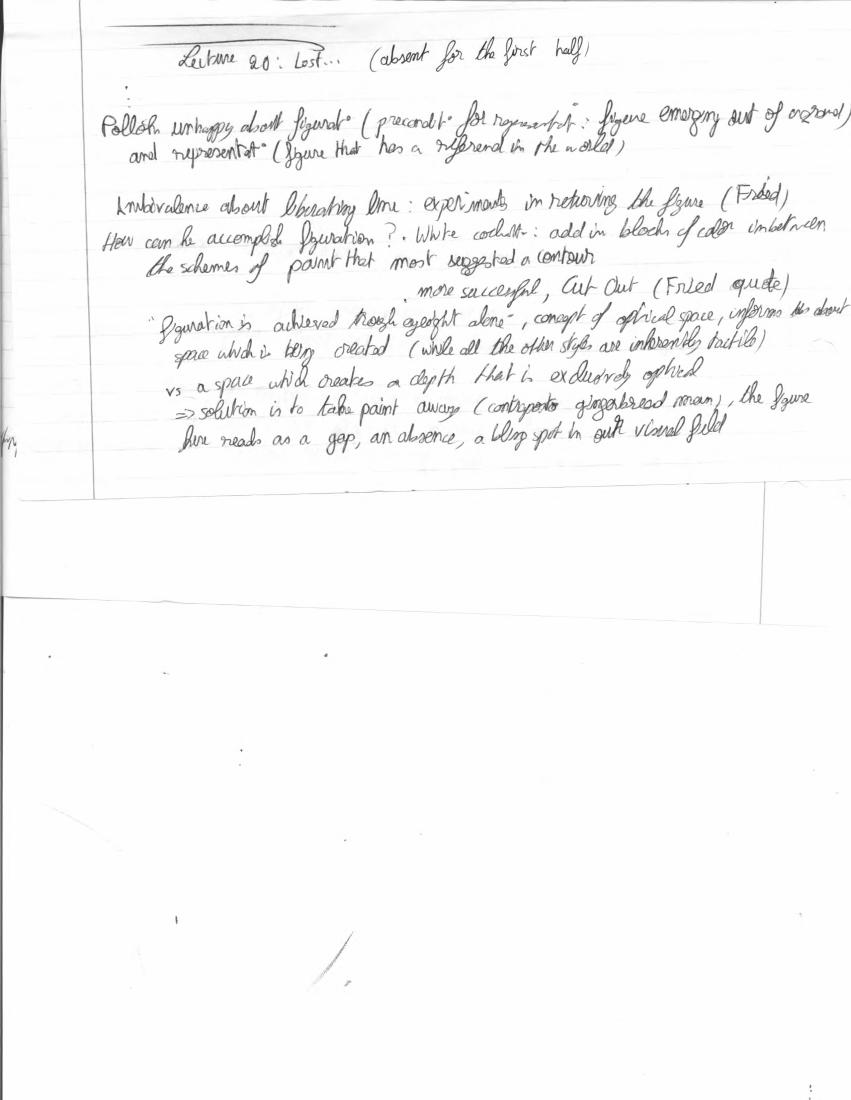 Lecture 20 : Lost... (absent for the first half)
Pollok unhappy about figurat° (precondit° for representat° : figure emerging out of a ground)
and representat° (figure that has a referend in the world)
Ambivalence about liberating line : experiments in retrieving the figure (Fried)
How can he accomplish figuration ? . White : add in blocks of color inbetween
the schemes of paint that most suggested a contour
. more successful, Cut Out (Fried quote)
"figuration is achieved though eyesight alone", concept of optical space, informs us about
space which is being created (while all the other styles are inherently tactile)
vs a space which creates a depth that is exclusively optical
=> solution is to take paint away (contraposto gingerbread man), the figure
here reads as a gap, an absence, a bling spot in our visual field